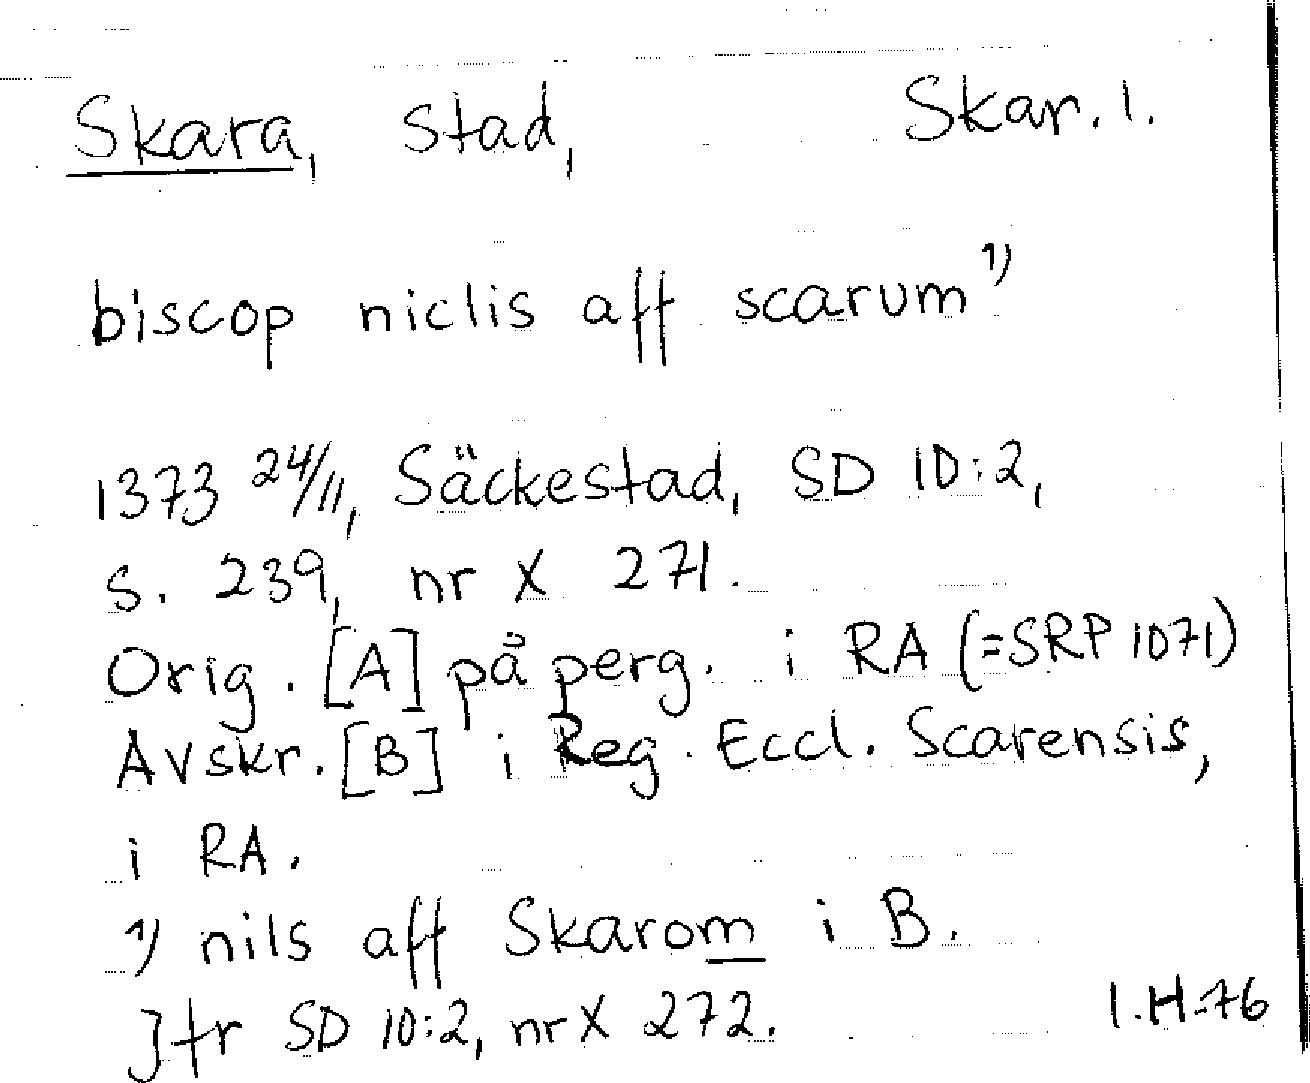 Skara, stad, Skar. 1.
biscop niclis aff scarum 1)
1373 24/11, Säckestad, SD 10:2,
s. 239, nr X 271.
Orig. [A] på perg. i RA (=SRP 1071)
Avskr. [B] i Reg. Eccl. Scarensis,
i RA.
1) nils aff Skarom i B.
Jfr SD 10:2, nr X 272.
I.H-76